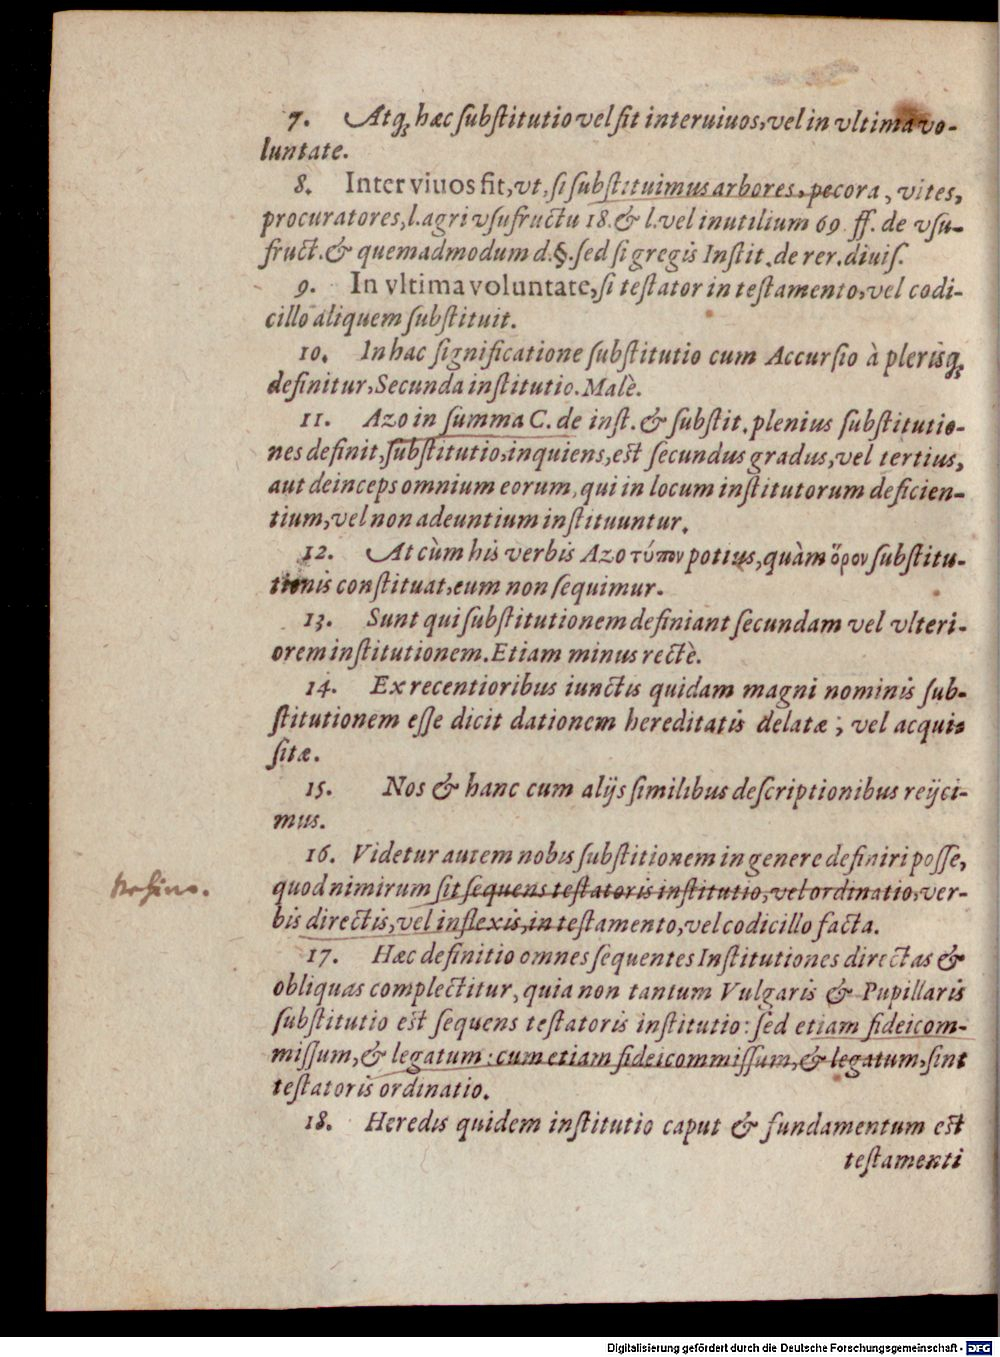 7. Atq; hæc ſubſtitutio vel fit interuiuos, vel in vltima vo-
luntate.
8. Inter viuos fit, vt, ſi ſubſtituimus arbores, pecora, vites,
procuratores, l. agri vſufructu 18. & l. vel inutilium 69 ff. de vſu-
fruct. & quemadmodum d. §. ſed ſi gregis Inſtit. de rer. diuiſ.
9. In vltima voluntate, ſi teſtator in teſtamento, vel codi-
cillo aliquem ſubſtituit.
10. In hac ſignificatione ſubſtitutio cum Accurſio à plerisq;
definitur, Secunda inſtitutio. Malè.
11. Azo in ſumma C. de inſt. & ſubſtit. plenius ſubſtitutio-
nes definit, ſubſtitutio, inquiens, eſt ſecundus gradus, vel tertius,
aut deinceps omnium eorum, qui in locum inſtitutorum deficien-
tium, vel non adeuntium inſtituuntur.
12. At cùm his verbis Azo τύπον potius, quàm ὅρον ſubſtitu-
tionis conſtituat, eum non ſequimur.
13. Sunt qui ſubſtitutionem definiant ſecundam vel vlteri-
orem inſtitutionem. Etiam minus rectè.
14. Ex recentioribus iunctis quidam magni nominis ſub-
ſtitutionem eſſe dicit dationem hereditatis delatæ; vel acqui-
ſitæ.
15. Nos & hanc cum alijs ſimilibus deſcriptionibus reijci-
mus.
16. Videtur autem nobis ſubſtitionem in genere definiri poſſe,
quod nimirum ſit ſequens teſtatoris inſtitutio, vel ordinatio, ver-
bis directis, vel inflexis, in teſtamento, vel codicillo facta.
17. Hæc definitio omnes ſequentes Inſtitutiones directas &
obliquas complectitur, quia non tantum Vulgaris & Pupillaris
ſubſtitutio eſt ſequens teſtatoris inſtitutio: ſed etiam fideicom-
miſſum, & legatum: cum etiam fideicommiſſum, & legatum, ſint
teſtatoris ordinatio.
18. Heredis quidem inſtitutio caput & fundamentum eſt
teſtamenti
Digitalisierung gefördert durch die Deutsche Forschungsgemeinschaft - DFG